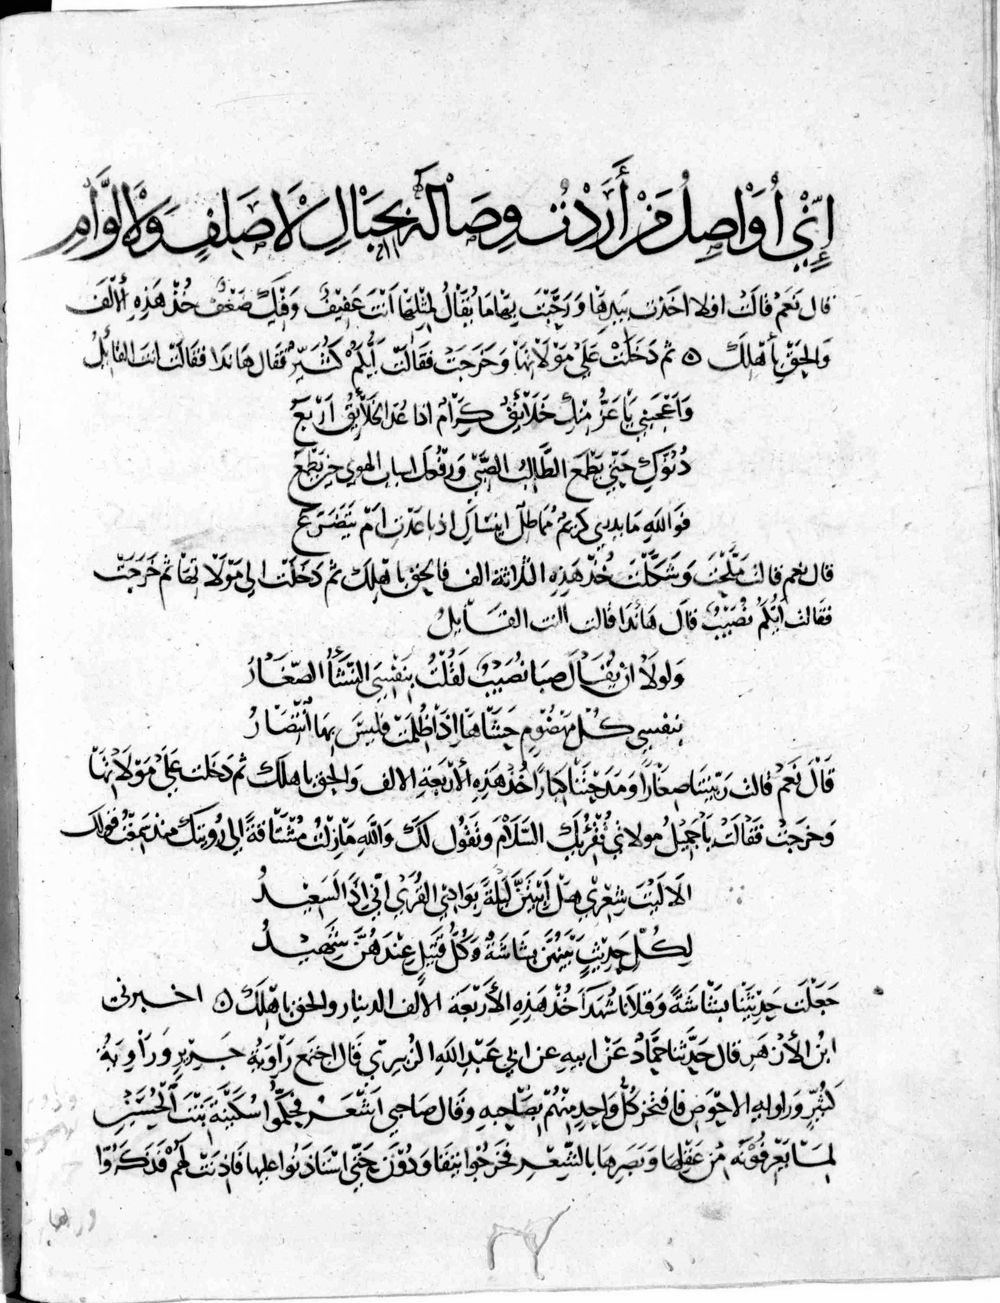 إِنِّي أُوَاصِلُ مَنْ أَرَدْتُ وِصَالَهُ بِحِبَالِ لَا صَلِفٍ وَلَا لَوَّامِ
قال نَعَمْ قالَتْ اولا اخذت بيدها وَرَحَّبْتَ بِهَا مَا يُقَالُ لِمِثْلِهَا اَنْتَ عَفِيفٌ وَفِيكَ ضَعْفٌ خُذْ هَذِهِ الألْفَ
وَالحَقْ بِأَهْلِكَ ه ثم دَخَلَتْ عَلَى مَوْلَاتِهَا وَخَرَجَتْ فَقَالَتْ أَيُّكُمْ كُثَيِّرٌ فقال هَا نَذَا فقَالَتْ انت القائِلُ
وَاَعْجَبَنِي يَا عَزُّ مِنْكِ خَلَائِقٌ كِرَامٌ اذا عُدَّ الخَلَائِقُ اَرْبَعُ
دُنُوُّكِ حَتَّى يَطْمَعَ الطَّالِبُ الصِّبَى وَرَفْعُكِ اسباب الهوى حين يَطْمَعُ
فوَاللهِ مَا يدري كَرِيمٌ مُمَاطَلٌ اينساكِ اذ باعَدْتِ اَمْ يَتَضَرَّعُ
قال نعم قالت مَلَّحْتَ وَشَكَّلْتَ خُذْ هَذِهِ الثلاثة الف فالحق باهلك ثم دَخَلَتْ الى مَوْلَاتِهَا ثُمَّ خَرَجَتْ
فقالت اَيُّكُمْ نُصَيْبٌ قال هَا نَذَا قالت اانت القَائِلُ
وَلولَا ان يُقَالَ صبا نُصَيْبٌ لَقُلْتُ بِنَفْسِيَ النَّشَأُ الصِّغَارُ
بنفسي كُلُّ مَهْضُومٍ حَشَاهَا اِذَا ظُلِمَتْ فليسَ بِهَا انْتِصَارُ
قَالَ نَعَمْ قالت رَبَّيْتَنَا صِغَاراً وَمَدَحْتَنَا كِبَاراً خُذْ هَذِهِ الأَرْبَعَةِ الالف وَالحق باهلك ثم دَخَلت عَلَى مَوْلَاتِهَا
وَخرجتْ فقَالَتْ يا جَمِيلُ مولاتي تُقْرِئُكَ السَّلَامَ وَتَقُولُ لَكَ وَاللهِ مَا زِلْتُ مُشْتَاقَةً الى رُؤيتِكَ منذ سَمِعْتُ قولك
الَا لَيْتَ شِعْرِي هَلْ اَبِيتَنَّ لَيْلَةً بِوَادِي القُرَى اِنِّي اِذاً لَسَعِيدُ
لِكُلِّ حَدِيثٍ بَيْنَهُنَّ بَشَاشَةٌ وَكُلُّ قَتِيلٍ عِنْدَهُنَّ شَهِيدُ
جَعَلْتَ حَدِيثَنَا بَشَاشَةً وَقتلانا شُهَدَاءَ خُذْ هَذِهِ الأَرْبَعَة الالف الدينار والحق باهلك ه اخبرني
ابنُ الأَزْهَرِ قال حَدَّثَنا حَمَّادٌ عَنْ ابيهِ عن ابي عَبْدِ اللهِ الزبيري قال اجتمع رَاوِيَةُ جَرِيرٍ وَرَاوِيَةُ
كُثَيِّرٍ وَراوية الاحْوَصِ فافتخر كُلُّ وَاحِدٍ مِنْهُمْ بِصَاحِبِهِ وَقال صَاحِبِي اَشْعَرُ فحكّموا سُكَيْنَةَ بِنْتَ الْحُسَيْنِ
لِمَا يَعْرِفُونَهُ مِنْ عَقْلِهَا وَبَصَرِهَا بِالشِّعْرِ فخَرَجُوا يَتَقَاوَدُونَ حَتَّى اسْتَأذَنُوا عليها فَاَذِنَتْ لَهُمْ فَذَكَرُوا